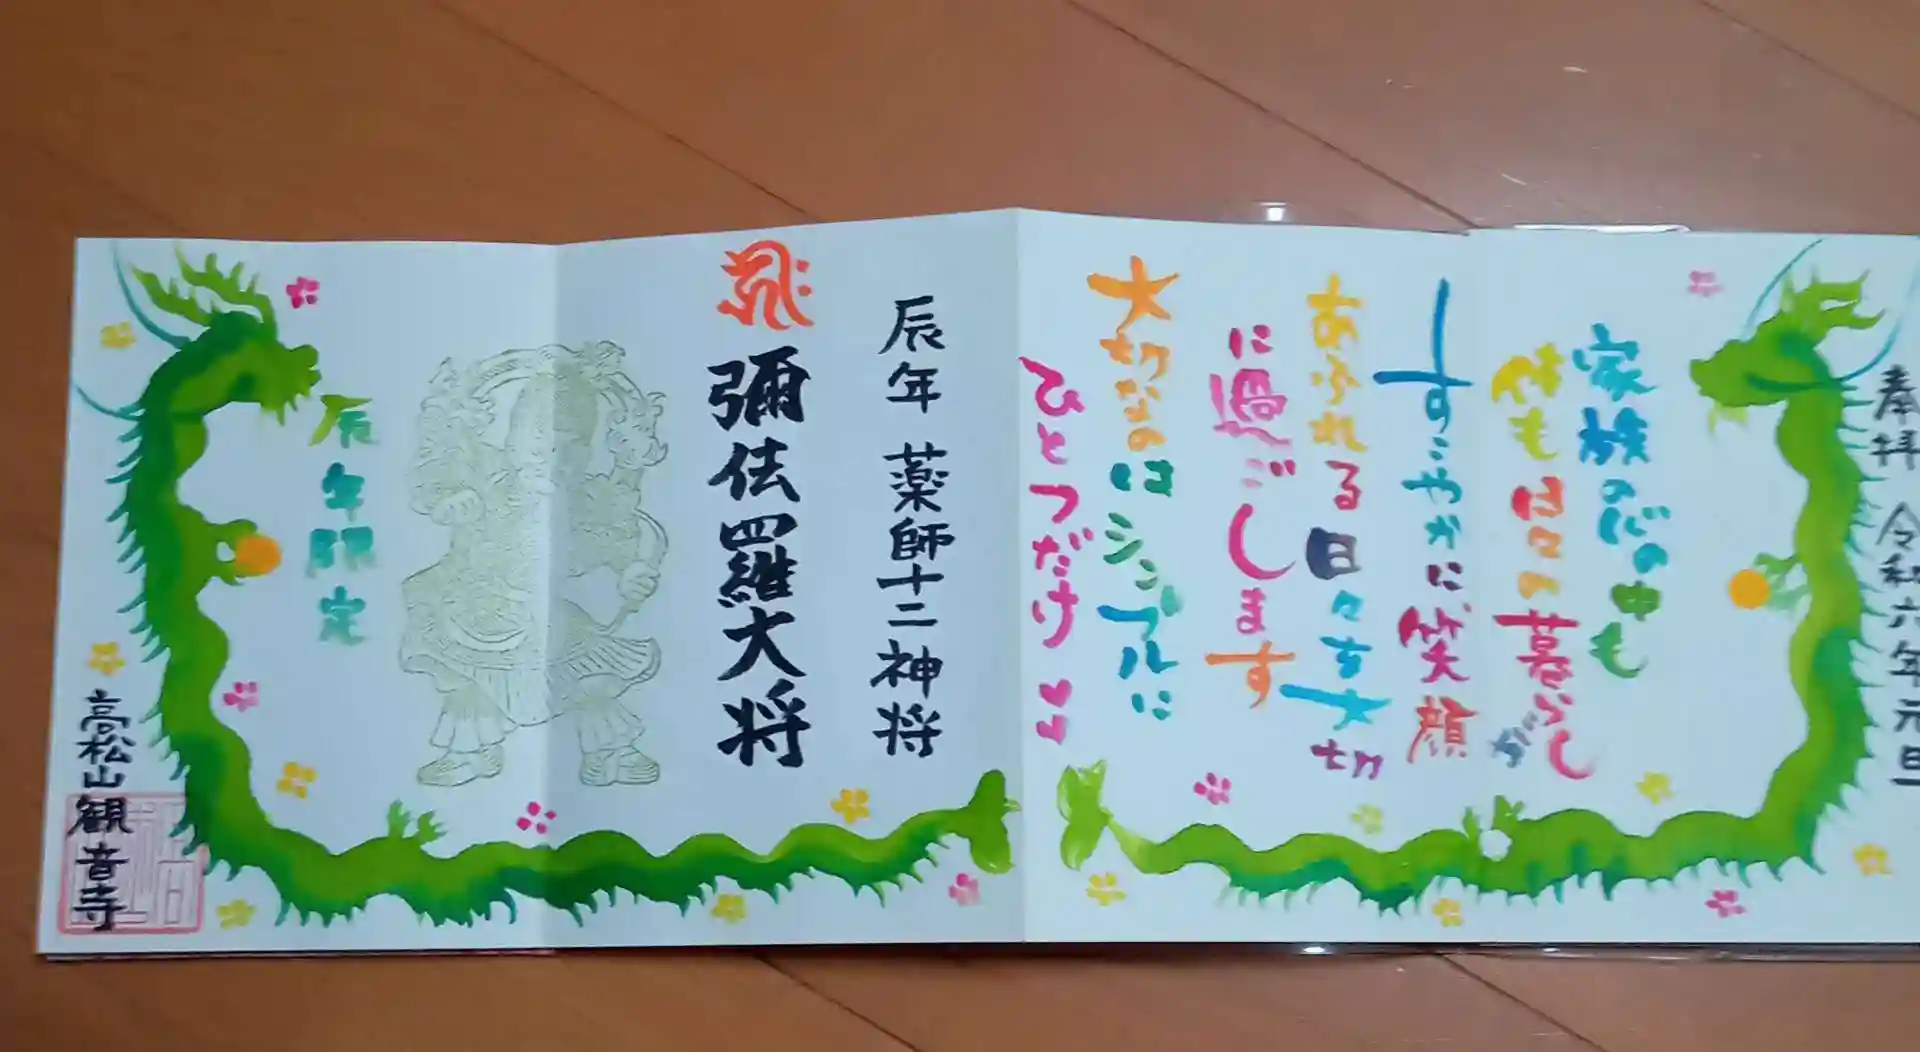 奉拝 令和六年元旦
家族の心の中も
体も日々の暮らしが
すこやかに笑顔
あふれる日々を大切
に過ごします
大切なのはシンプルに
ひとつだけ
辰年 薬師十二神将
彌佉羅大将
辰年限定
高松山観音寺